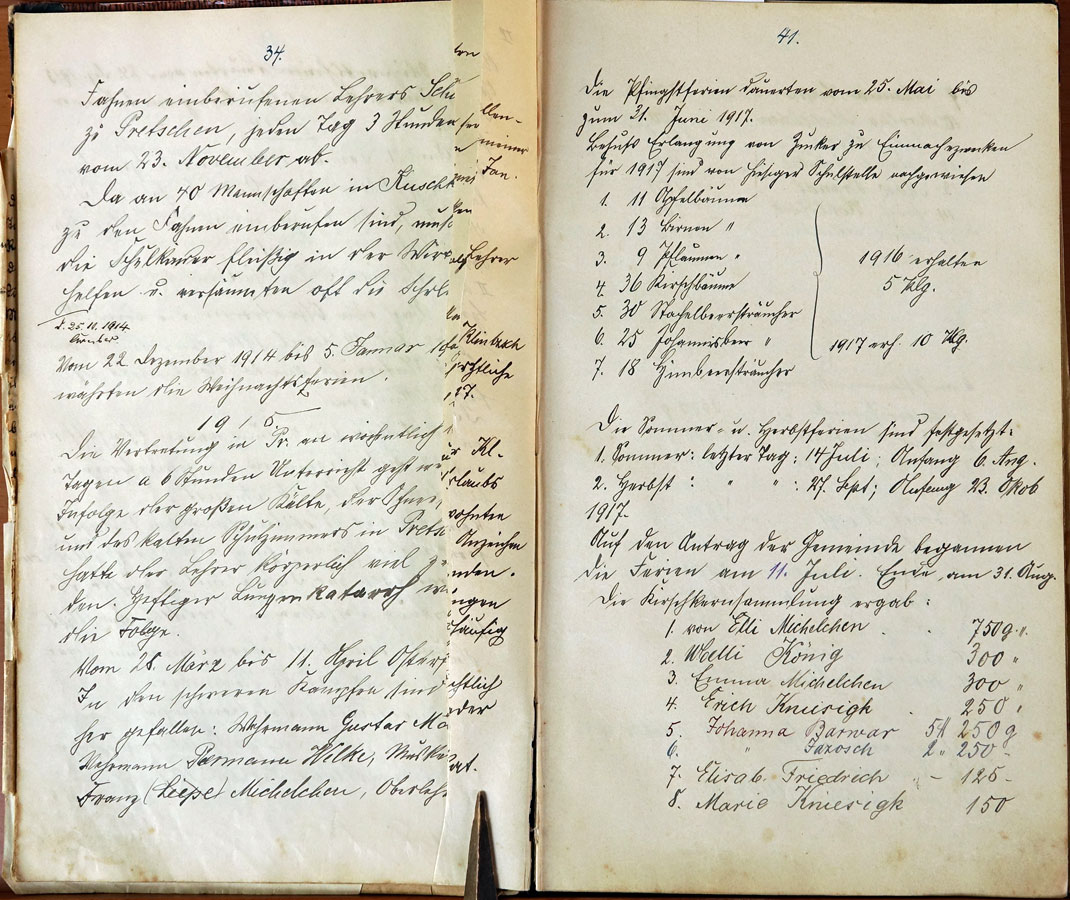 34.
Fahnen einberufenen Lehrers Schu
zu Pretschen, jeden Tag 3 Stunden
vom 23. November ab.
Da an 40 Mannschaften in Kuschk
zu den Fahnen einberufen sind, muß
die Schulkinder fleißig in der Wir
helfen u. versäumten oft die Schu
d. 25.11.1914
Vom 22. Dezember 1914 bis 5. Januar 19
währten die Weihnachtsferien.
1915.
Die Vertretung in Pr. an wöchentlich
Tagen a 6 Stunden Unterricht geht
Infolge der großen Kälte, der Schnee
und des kalten Schulzimmers in Prets
hatte der Lehrer körperlich viel
den. Heftiger Lungenkatarrh
die Folge.
Vom 28. März bis 11. April Oster
In den schweren Kämpfen sind
her gefallen: Wehrmann Gustav
Wehrmann Hermann Wilke, Musk
Franz (Liepe) Michelchen, Oberleh
meiner
Jan.
Lehrer
17.
Kl.
rlaubs
wohnten
Anziehen
nden.
ngen
häufig
chtlich
oder
at.
41.
Die Pfingstferien dauerten vom 25. Mai bis
zum 31. Juni 1917.
Behufs Erlangung von Zucker zu Einmachezwecken
für 1917 sind von hiesiger Schulstelle nachgewiesen
1. 11 Apfelbäume
2. 13 Birnen "
3. 9 Pflaumen "
4. 36 Kirschbäume
5. 30 Stachelbeersträucher
6. 25 Johannisbeer "
7. 18 Himbeersträucher
1916 erhalten
5 Klg.
1917 erh. 10 Klg.
Die Sommer- u. Herbstferien sind festgesetzt:
1. Sommer: letzter Tag: 14 Juli; Anfang 6. Aug.
2. Herbst : " " : 27. Sept; Anfang 23. Okob
1917.
Auf den Antrag der Gemeinde begannen
die Ferien am 11. Juli. Ende am 31. Aug.
Die Kirschkernsammlung ergab:
1. von Elli Michelchen . . 750 g.
2. Welli König 300 "
3. Emma Michelchen 300 "
4. Erich Kniesigk . 250 "
5. Johanna Bagwar 5 tl 250 g
6. " Jazosch 2 " 250 -
7. Elisab. Friedrich - 125 -
8. Marie Kniesigk 150